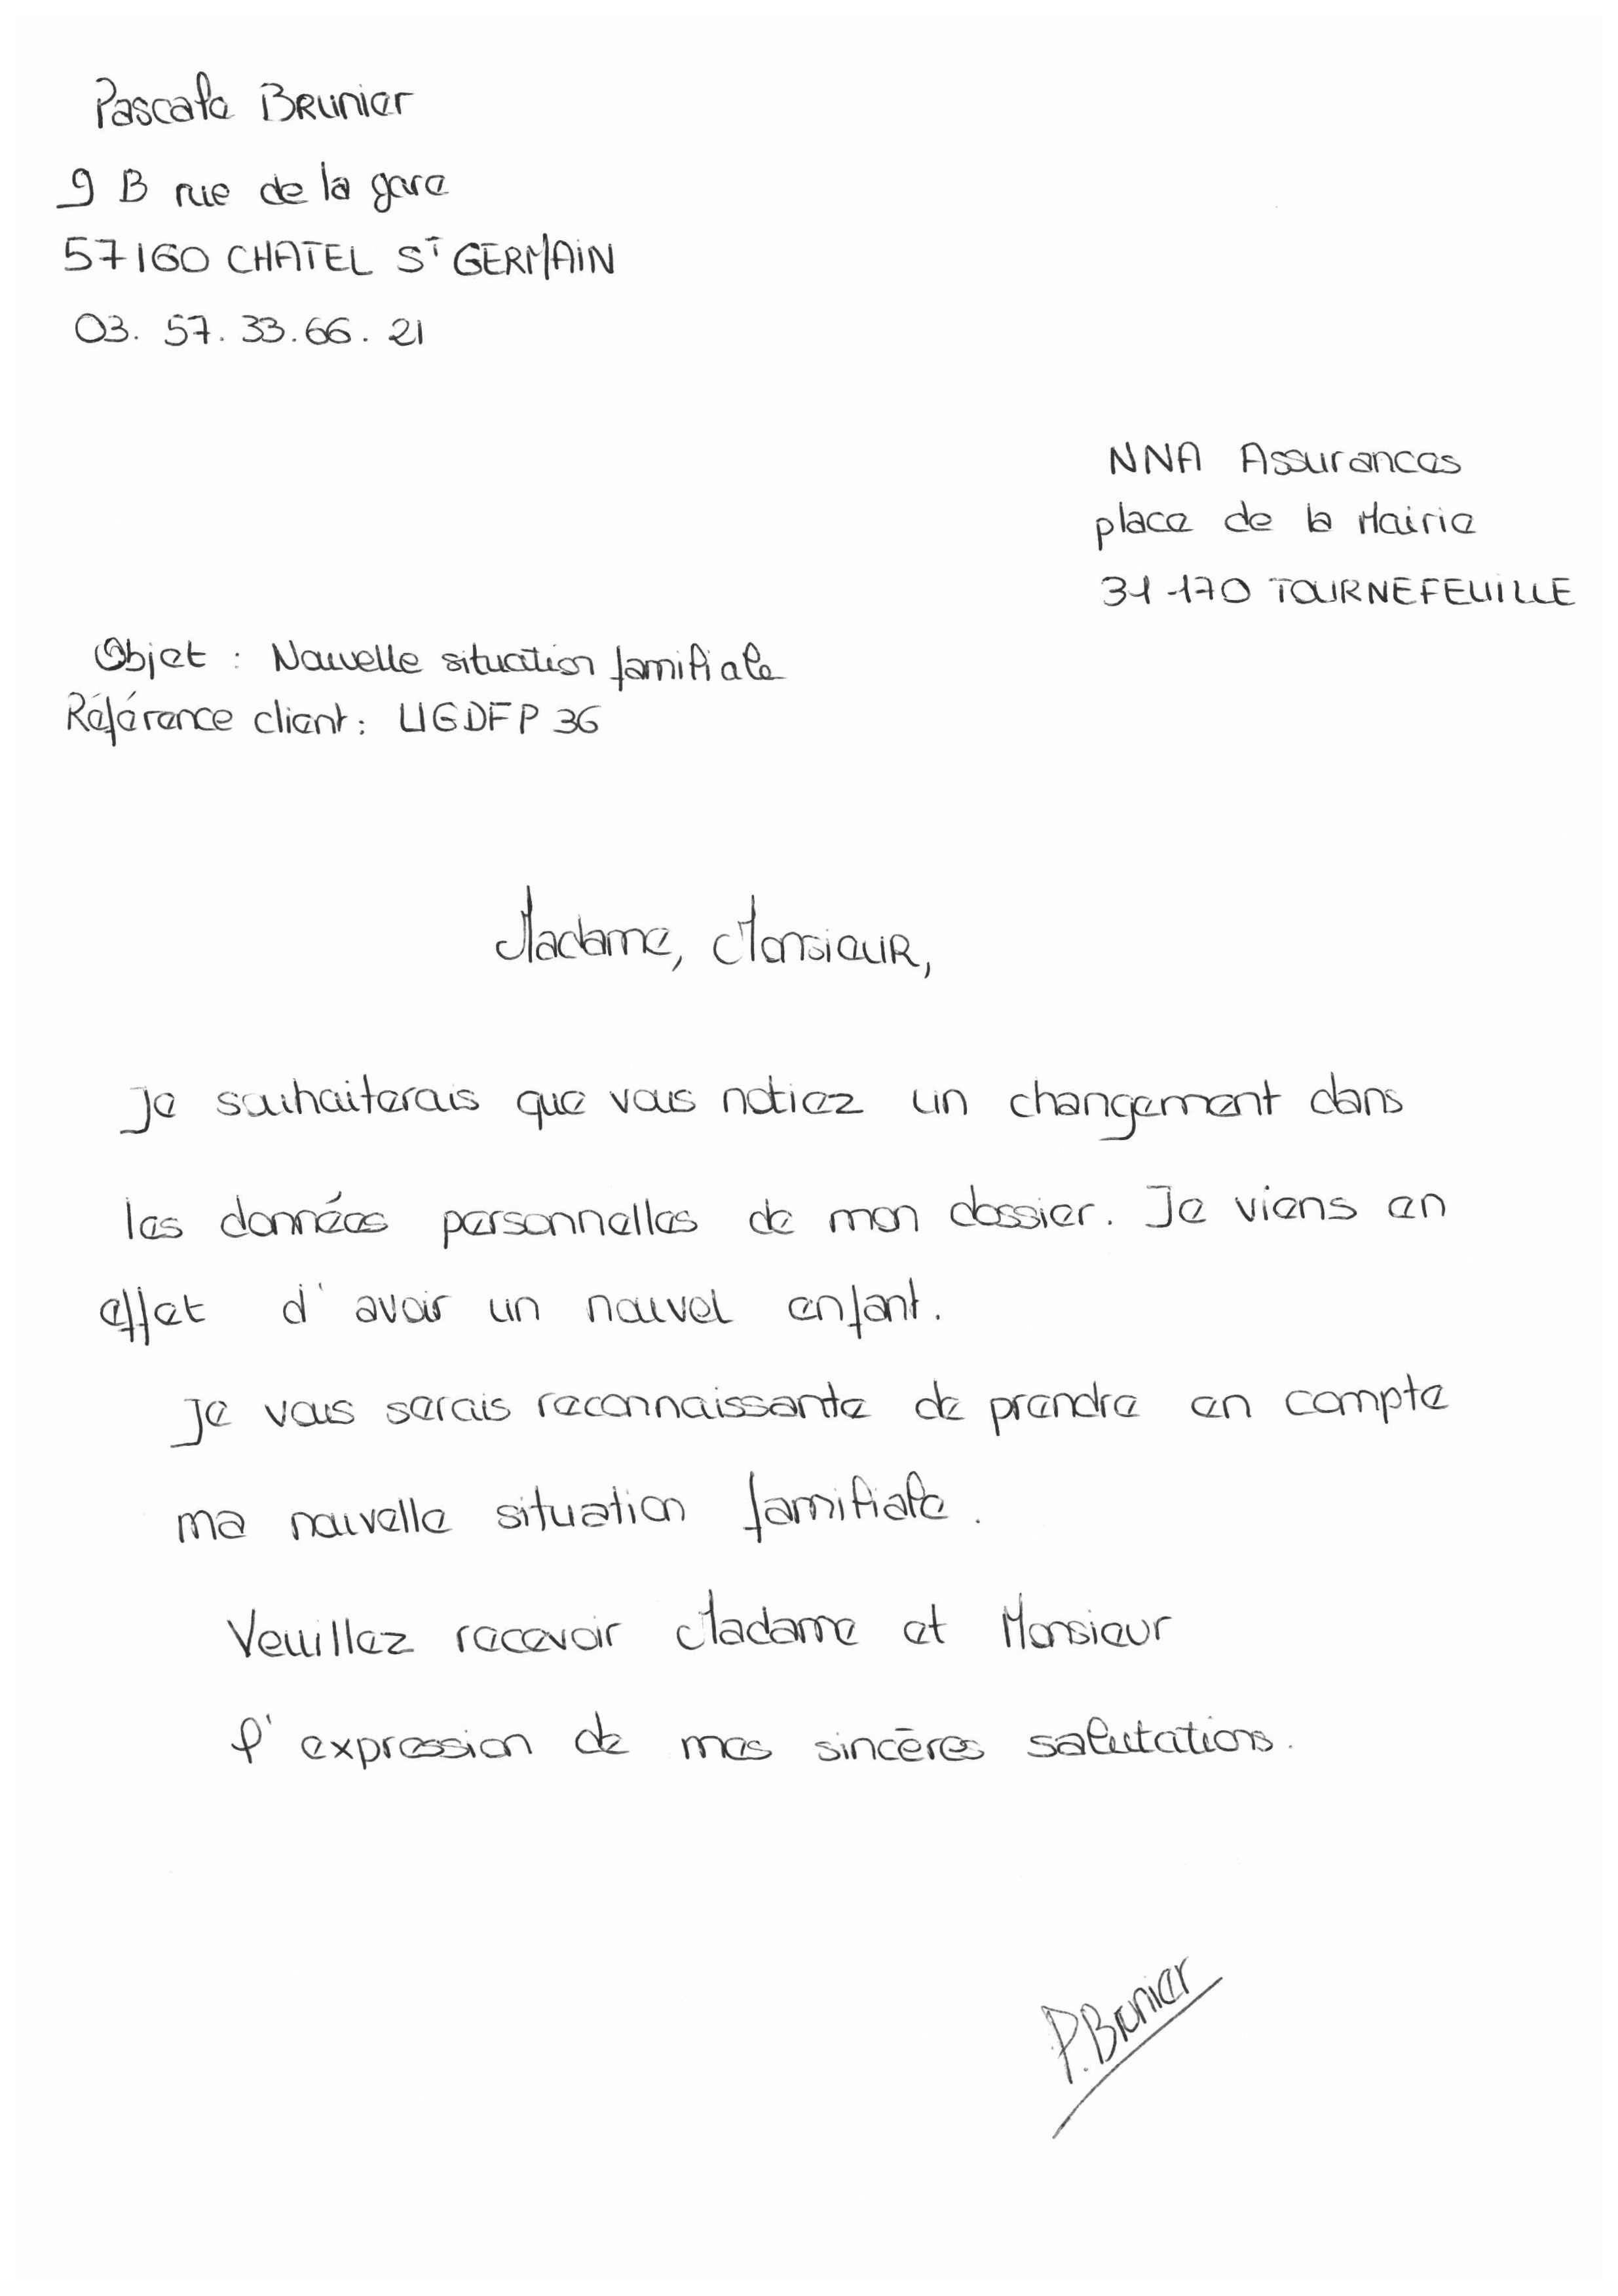 Pascale Brunier
9 B rue de la gare
57160 CHATEL ST GERMAIN
03. 57. 33. 66. 21
NNA Assurances
place de la Mairie
31170 TOURNEFEUILLE
Objet : Nouvelle situation familiale
Référence client : UGDFP 36
Madame, Monsieur,
Je souhaiterais que vous notiez un changement dans
les données personnelles de mon dossier. Je viens en
effet d'avoir un nouvel enfant.
Je vous serais reconnaissante de prendre en compte
ma nouvelle situation familiale.
Veuillez recevoir Madame et Monsieur
l'expression de mes sincères salutations.
P. Brunier